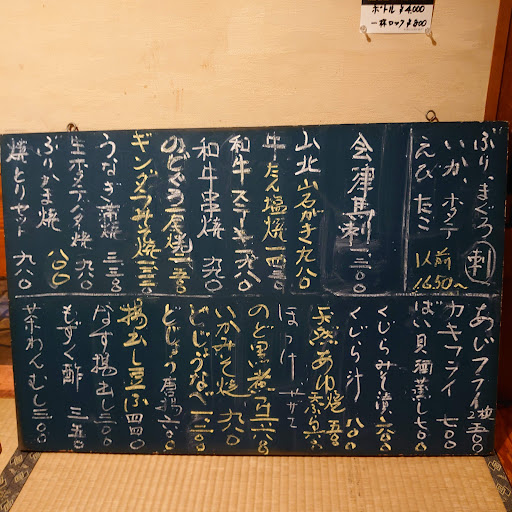 ボトル ¥4,000
一杯ロック ¥800
ぶり、まぐろ 刺
いか、ホタテ
えび たこ 1人前 1650〜
会津馬刺 一三〇〇
山北岩がき 九八〇
牛たん塩焼 一四三〇
和牛ステーキ
和牛串焼 九八〇
のどぐろ一夜焼
ギンダラみそ焼 一三二〇
うなぎ蒲焼 三三〇〇
生ホタテバター焼 九八〇
ぶりかま焼 八八〇
焼とりセット 九八〇
あじフライ 2枚 五〇〇
カキフライ 七〇〇
ばい貝酒蒸し 七〇〇
くじらみそ漬 六〇〇
くじら汁 八〇〇
天然あゆ焼
ほっけ サザエ
のど黒煮付
いかみそ焼 九八〇
どじょうなべ
どじょう唐揚 六〇〇
揚出し豆ふ 四四〇
なす揚出し 五〇〇
もずく酢 三五〇
茶わんむし 五〇〇